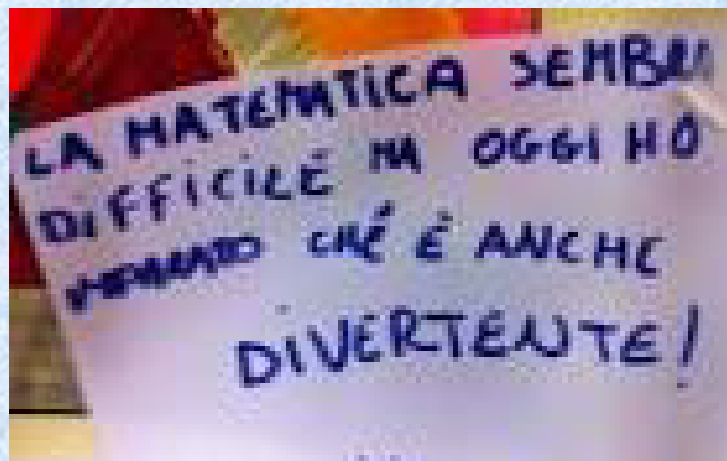 LA MATEMATICA SEMBRA
DIFFICILE MA OGGI HO
IMPARATO CHE È ANCHE
DIVERTENTE!